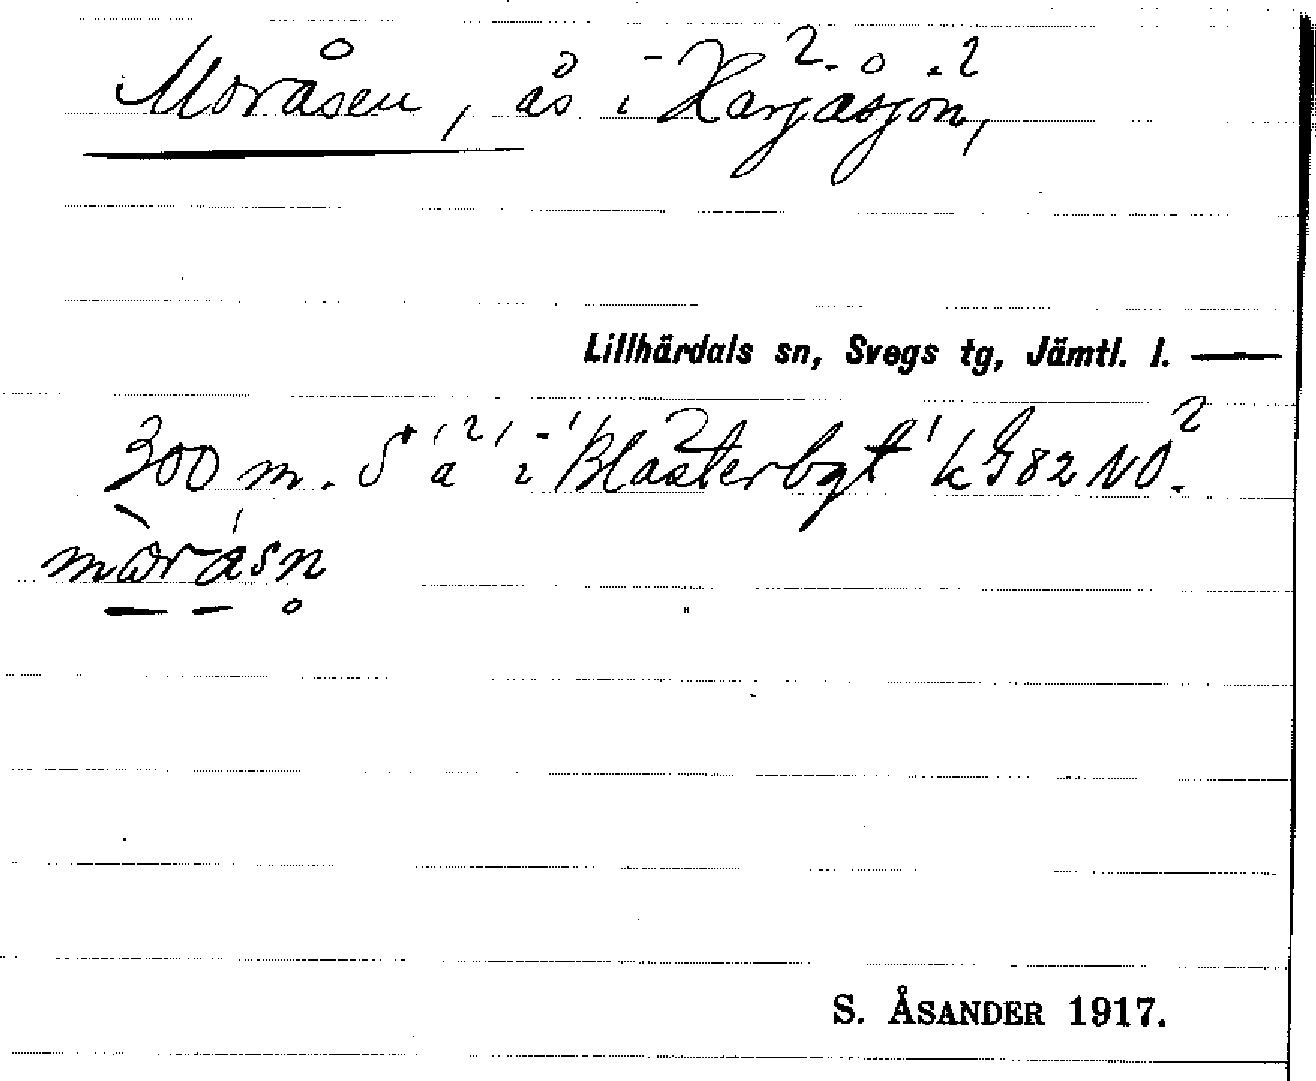 Moråsen, ås i Harjåsjön,
Lillhärdals sn, Svegs tg, Jämtl. l. —
300 m. S a i Blästerbgt k G82 NO.
moråsn
S. ÅSANDER 1917.